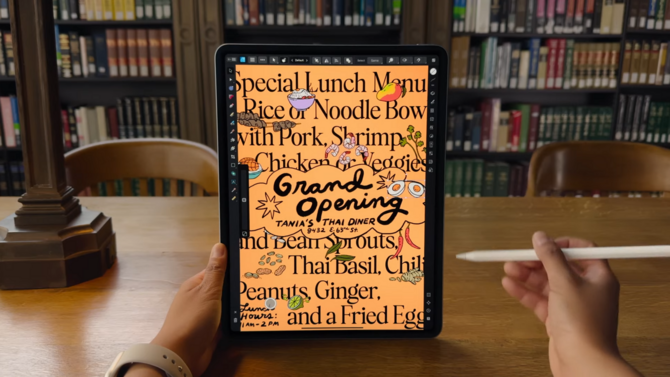 Special Lunch Menu
Rice or Noodle Bow
with Pork, Shrimp
Chicken or Veggies
Grand
Opening
TANIA'S THAI DINER
8432 E. 65th St.
and Bean Sprouts,
Thai Basil, Chili
Peanuts, Ginger,
Lunch
Hours:
11AM-2PM
and a Fried Egg